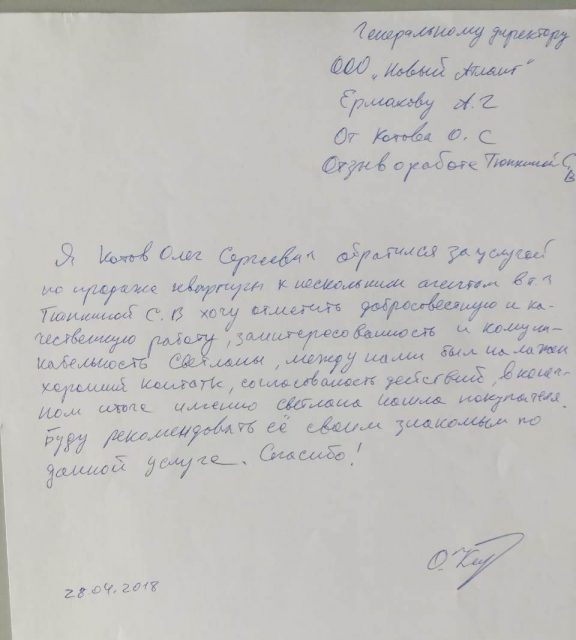 Генеральному директору
ООО „Новый Атлант"
Ермакову А.Г
От Котова О.С
Отзыв о работе Тюпкиной С.В
Я Котов Олег Сергеевич обратился за услугой
по продаже квартиры к нескольким агентом в т.ч
Тюпкиной С.В хочу отметить добросовестную и ка-
чественную работу, заинтересованность и комуни-
кабельность Светланы, между нами был налажен
хороший контатк, согласованость действий, в конеч-
ном итоге именно светлана нашла покупателя.
Буду рекомендовать её своим знакомым по
данной услуге. Спасибо!
28.04.2018